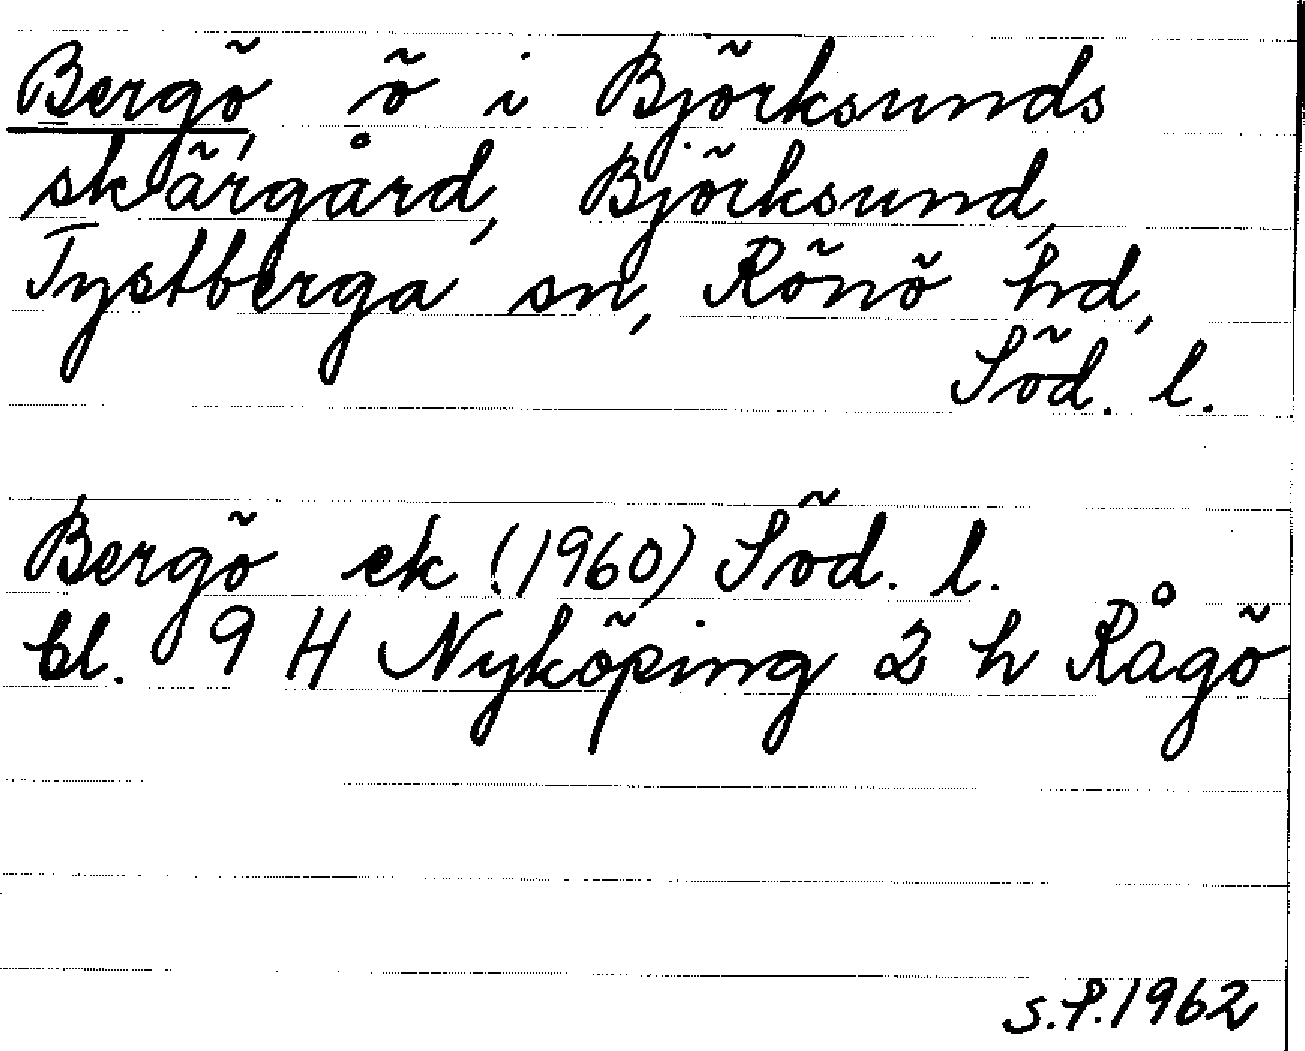 Bergö, ö i Björksunds
skärgård, Björksund,
Tystberga sn, Rönö hd,
Söd. l.
Bergö ek (1960) Söd. l.
bl. 9 H Nyköping 2 h Rågö
S.P. 1962